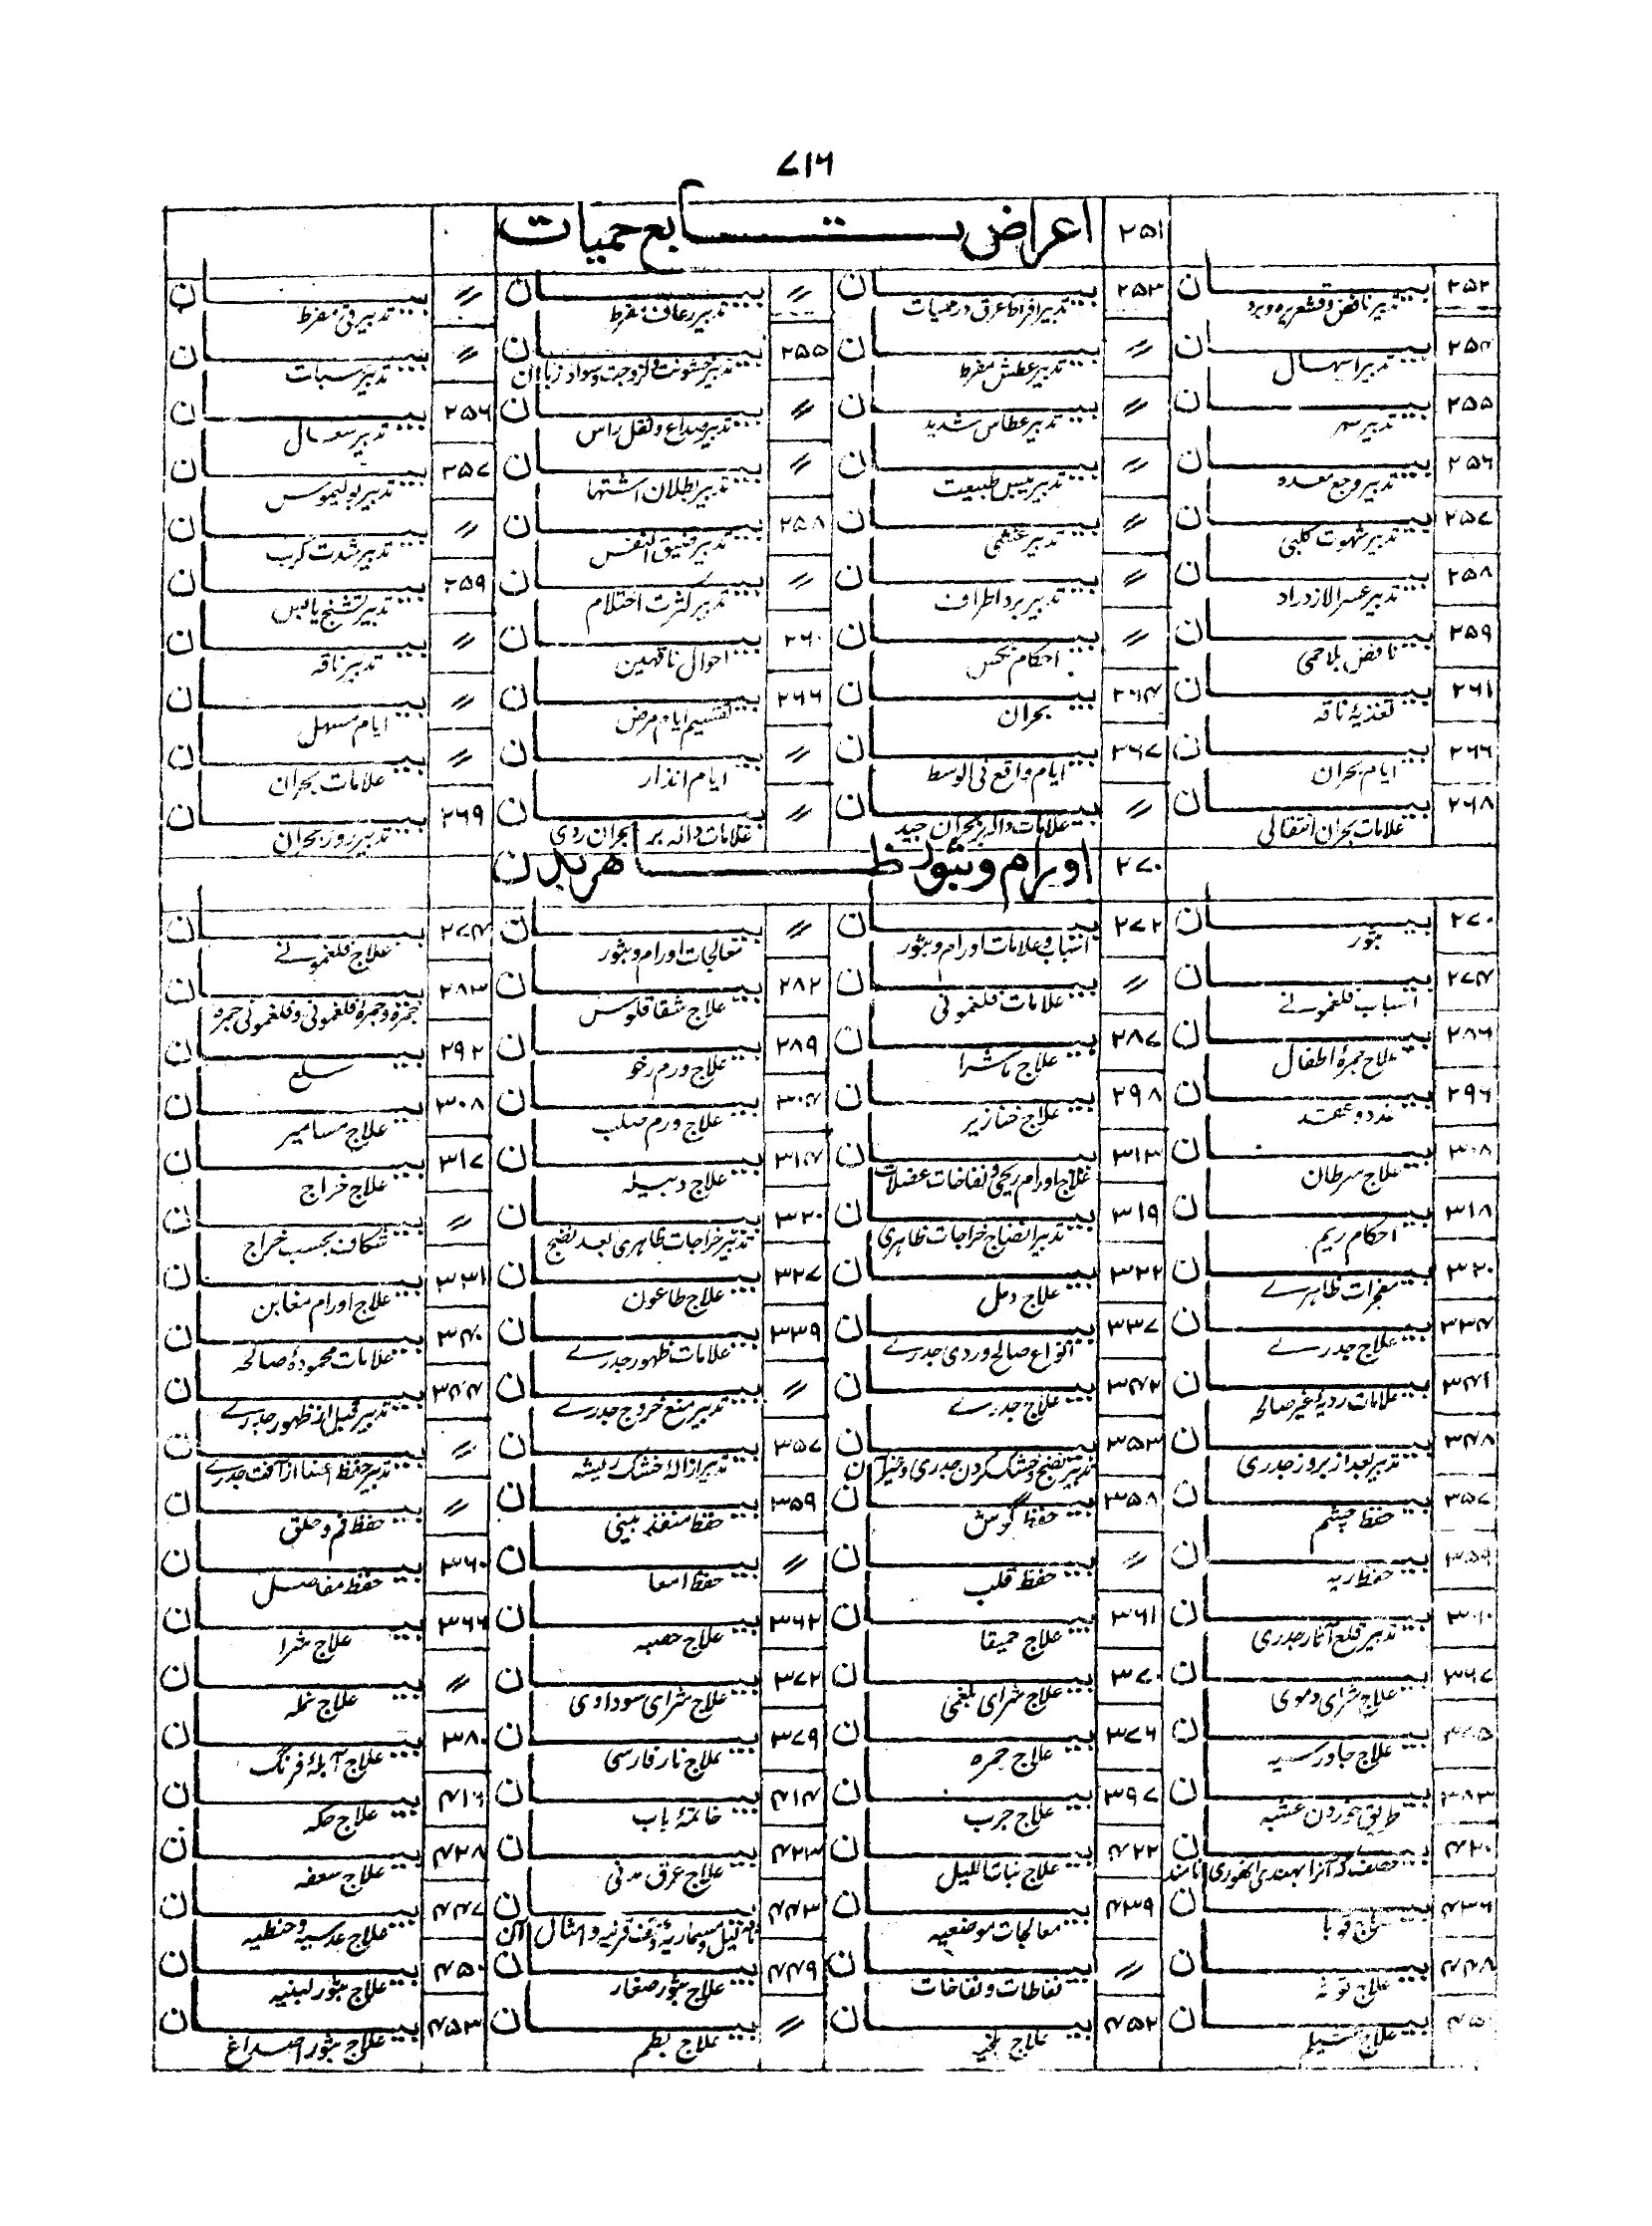 ۷۱۶
۲۵۱ اعراض تابع حمیات
۲۵۲ بیان تدبیر نافض و قشعریره و برد ۲۵۳ بیان تدبیر افراط عرق در حمیات 〃 بیان تدبیر رعاف مفرط 〃 بیان تدبیر قی مفرط
۲۵۴ بیان تدبیر اسهال 〃 بیان تدبیر عطش مفرط ۲۵۵ بیان تدبیر خشونت و لزوجت و سواد زبان 〃 بیان تدبیر سبات
۲۵۵ بیان تدبیر سهر 〃 بیان تدبیر عطاس شدید 〃 بیان تدبیر صداع و ثقل راس ۲۵۶ بیان تدبیر سعال
۲۵۶ بیان تدبیر وجع معده 〃 بیان تدبیر یبس طبیعت 〃 بیان تدبیر بطلان اشتها ۲۵۷ بیان تدبیر بولیموس
۲۵۷ بیان تدبیر شهوت کلبی 〃 بیان تدبیر غشی ۲۵۸ بیان تدبیر ضیق النفس 〃 بیان تدبیر شدت کرب
۲۵۸ بیان تدبیر عسر الازدراد 〃 بیان تدبیر برد اطراف 〃 بیان تدبیر کثرت احتلام ۲۵۹ بیان تدبیر تشنج یابس
۲۵۹ بیان نافض بلا حمی 〃 بیان احکام نکس ۲۶۰ بیان احوال ناقهین 〃 بیان تدبیر ناقه
۲۶۱ بیان تغذیهٔ ناقه ۲۶۴ بیان بحران ۲۶۶ بیان تقسیم ایام مرض 〃 بیان ایام مسهل
۲۶۶ بیان ایام بحران ۲۶۷ بیان ایام واقع فی الوسط 〃 بیان ایام انذار 〃 بیان علامات بحران
۲۶۸ بیان علامات بحران انتقالی 〃 بیان علامات داله بر بحران جید 〃 بیان علامات داله بر بحران ردی ۲۶۹ بیان تدبیر روز بحران
۲۷۰ اورام و بثور ظاهر بدن
۲۷۰ بیان بثور ۲۷۲ بیان اسباب و علامات اورام و بثور 〃 بیان معالجات اورام و بثور ۲۷۴ بیان علاج فلغمونے
۲۷۴ بیان اسباب فلغمونے 〃 بیان علامات فلغمونی ۲۸۲ بیان علاج شقاقلوس ۲۸۳ بیان حمره و حمرهٔ فلغمونی و فلغمونی حمره
۲۸۶ بیان علاج حمرهٔ اطفال ۲۸۷ بیان علاج ماشرا ۲۸۹ بیان علاج ورم رخو ۲۹۲ بیان سلع
۲۹۶ بیان غدد و عقد ۲۹۸ بیان علاج خنازیر ۳۰۴ بیان علاج ورم صلب ۳۰۸ بیان علاج مسامیر
۳۰۸ بیان علاج سرطان ۳۱۳ بیان علاج اورام ریحی و نفاخات عضلات ۳۱۴ بیان علاج دبیله ۳۱۷ بیان علاج خراج
۳۱۸ بیان احکام ریم ۳۱۹ بیان تدبیر انضاج خراجات ظاهری ۳۲۰ بیان تدبیر خراجات ظاهری بعد نضج 〃 بیان شگاف بحسب خراج
۳۲۰ بیان مفجرات ظاهرے ۳۲۲ بیان علاج دمل ۳۲۷ بیان علاج طاعون ۳۳۱ بیان علاج اورام مغابن
۳۳۴ بیان علاج جدرے ۳۳۷ بیان انواع صالح و ردی جدرے ۳۳۹ بیان علامات ظهور جدرے ۳۴۰ بیان علامات محمودهٔ صالحه
۳۴۱ بیان علامات ردیهٔ غیر صالحه ۳۴۲ بیان علاج جدرے 〃 بیان تدبیر منع خروج جدرے ۳۴۴ بیان تدبیر قبل از ظهور جدرے
۳۴۸ بیان تدبیر بعد از بروز جدری ۳۵۳ بیان تدبیر نضج و خشک کردن جدری و غیر آن ۳۵۷ بیان تدبیر ازالهٔ خشک ریشه 〃 بیان تدبیر حفظ اعضا از آفت جدرے
۳۵۷ بیان حفظ چشم ۳۵۸ بیان حفظ گوش ۳۵۹ بیان حفظ منفذ بینی 〃 بیان حفظ فم و حلق
۳۵۹ بیان حفظ ریه 〃 بیان حفظ قلب 〃 بیان حفظ امعا ۳۶۰ بیان حفظ مفاصل
۳۶۰ بیان تدبیر قلع آثار جدری ۳۶۱ بیان علاج حمیقا ۳۶۲ بیان علاج حصبه ۳۶۶ بیان علاج شرا
۳۶۷ بیان علاج شرای دموی ۳۷۰ بیان علاج شرای بلغمی ۳۷۲ بیان علاج شرای سوداوی 〃 بیان علاج نمله
۳۷۵ بیان علاج جاورسیه ۳۷۶ بیان علاج جمره ۳۷۹ بیان علاج نار فارسی ۳۸۰ بیان علاج آبلهٔ فرنگ
۳۸۳ بیان طریق خوردن عشبه ۳۹۷ بیان علاج جرب ۴۱۴ بیان خاتمهٔ باب ۴۱۶ بیان علاج حکه
۴۲۰ بیان حصف که آنرا بهندی انهوری نامند ۴۲۲ بیان علاج بنات اللیل ۴۲۳ بیان علاج عرق مدنی ۴۲۸ بیان علاج سعفه
۴۳۶ بیان علاج قوبا ۴۳۹ بیان معالجات موضعیه ۴۴۳ بیان ثآلیل و مسماریه و قرنیه و امثال آن ۴۴۷ بیان علاج عدسیه و حنطیه
۴۴۸ بیان علاج توثه 〃 بیان نفاطات و نفاخات ۴۴۹ بیان علاج بثور صغار ۴۵۰ بیان علاج بثور لبنیه
بیان علاج ۴۵۲ بیان علاج بلخیه 〃 بیان علاج بطم ۴۵۳ بیان علاج بثور اصداغ